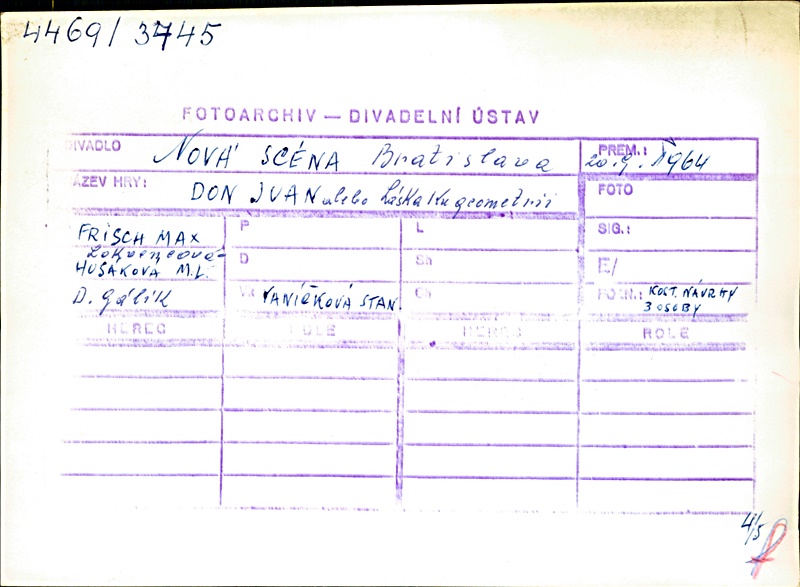 4469/3745
FOTOARCHIV — DIVADELNÍ ÚSTAV
DIVADLO NOVÁ SCÉNA Bratislava PREM.: 20.9.1964
ÁZEV HRY: DON JUAN alebo Láska ku geometrii FOTO
FRISCH MAX P L SIG.:
HUSÁKOVÁ M. L. D Sh E/
D. Gálik VANÍČKOVÁ STAN. Ch POZN.: KOST. NÁVRHY
3 OSOBY
HEREC ROLE HEREC ROLE
4/5